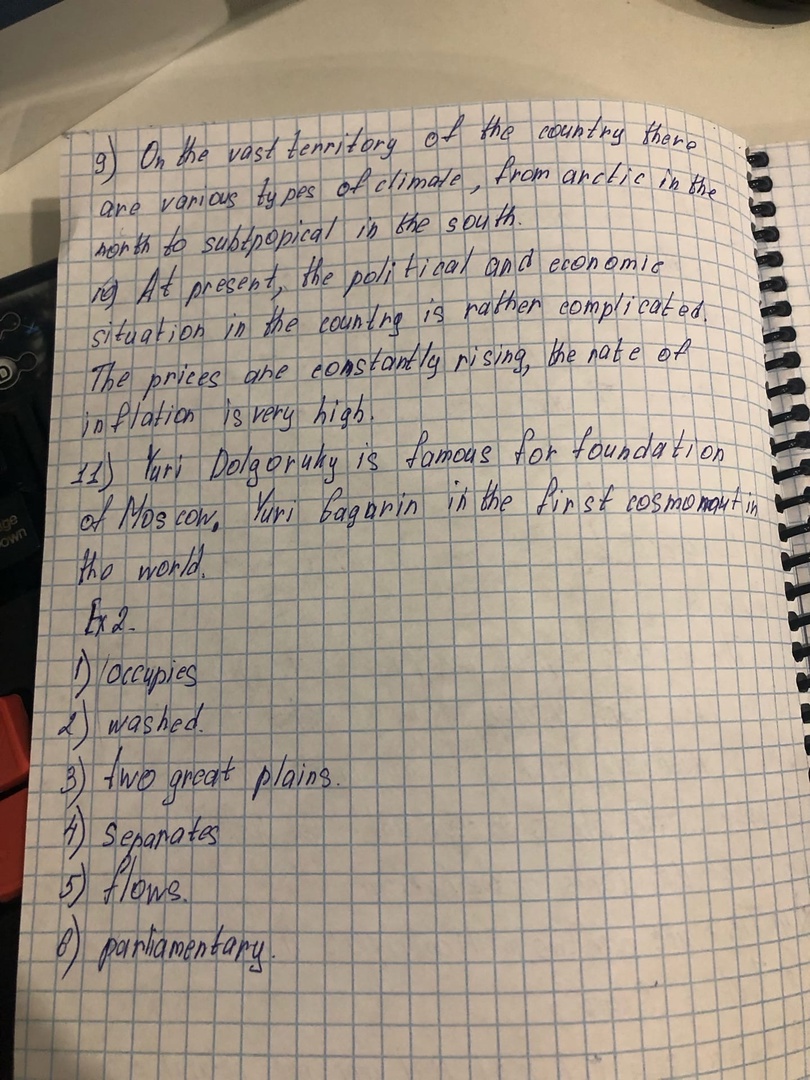 9) On the vast territory of the country there
are various types of climate, from arctic in the
north to subtpopical in the south.
10) At present, the political and economic
situation in the country is rather complicated.
The prices are constantly rising, the rate of
inflation is very high.
11) Yuri Dolgoruky is famous for foundation
of Moscow. Yuri Gagarin in the first cosmonaut in
the world.
Ex 2.
1) occupies
2) washed.
3) two great plains.
4) separates
5) flows.
6) parliamentary.